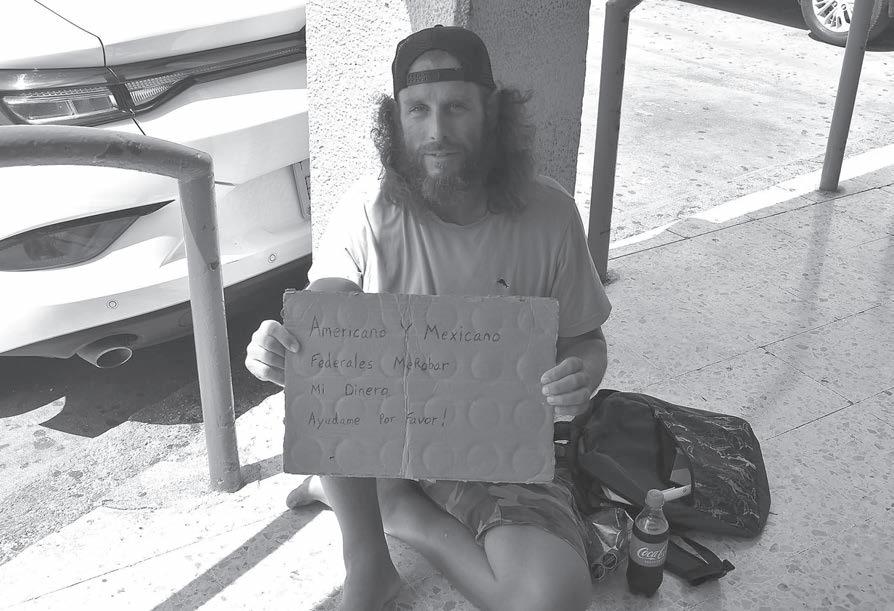 Americano Y Mexicano
Federales MeRobar
Mi Dinero
Ayudame Por Favor!
Coca-Cola